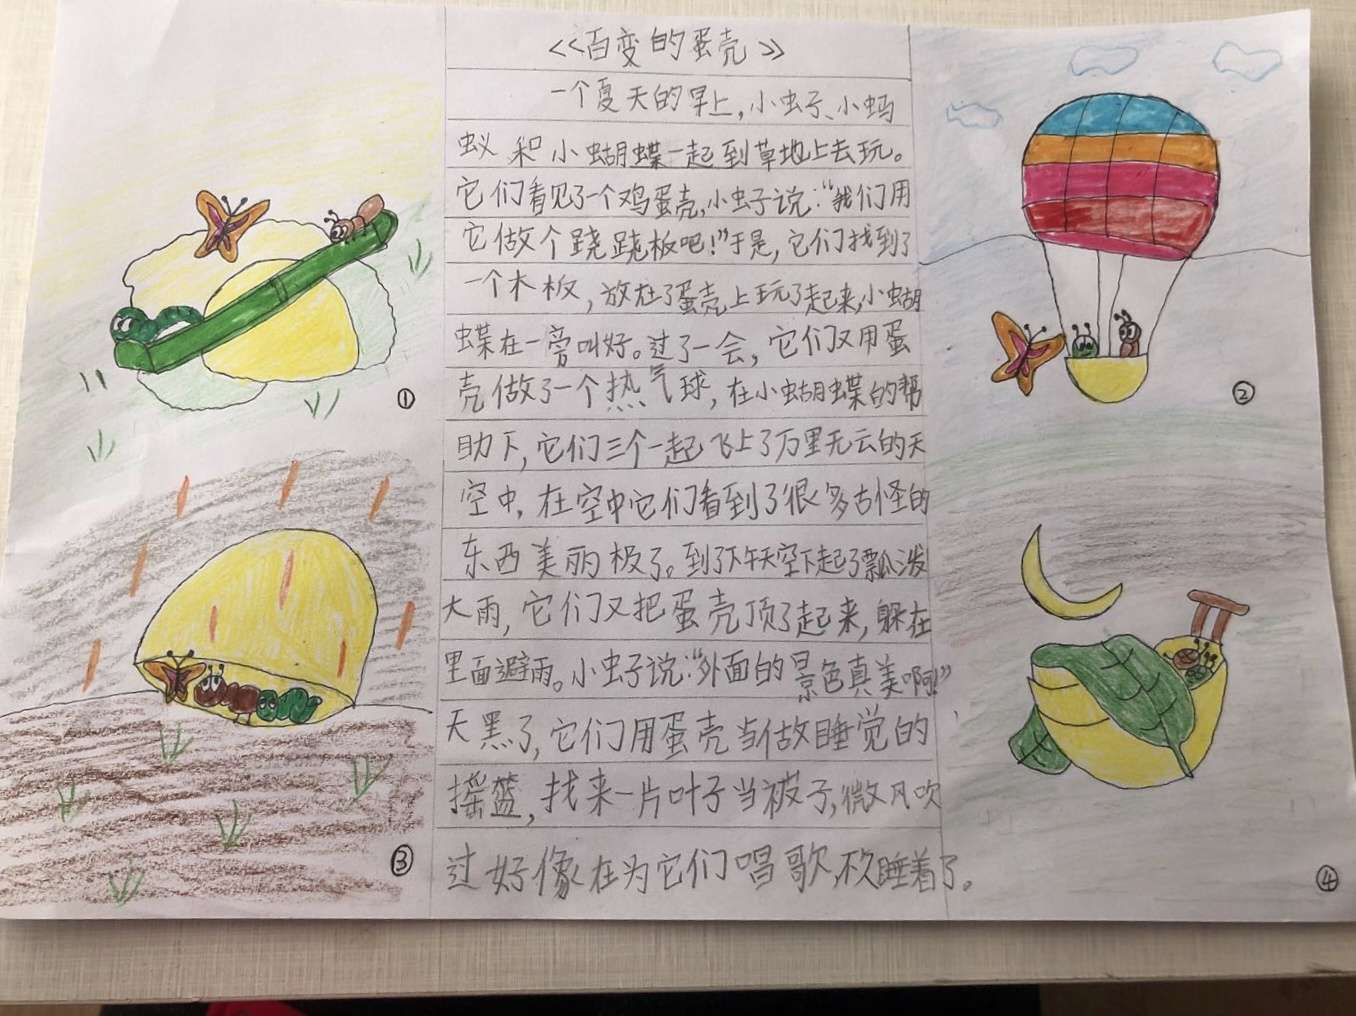 《百变的蛋壳》
一个夏天的早上,小虫子、小蚂
蚁和小蝴蝶一起到草地上去玩。
它们看见了一个鸡蛋壳,小虫子说:“我们用
它做个跷跷板吧!”于是,它们找到了
一个木板,放在了蛋壳上玩了起来,小蝴
蝶在一旁叫好。过了一会,它们又用蛋
壳做了一个热气球,在小蝴蝶的帮
助下,它们三个一起飞上了万里无云的天
空中,在空中它们看到了很多古怪的
东西美丽极了。到了下午天空下起了瓢泼
大雨,它们又把蛋壳顶了起来,躲在
里面避雨。小虫子说:“外面的景色真美啊!”
天黑了,它们用蛋壳当做睡觉的
摇篮,找来一片叶子当被子,微风吹
过好像在为它们唱歌,睡着了。
①
②
③
④